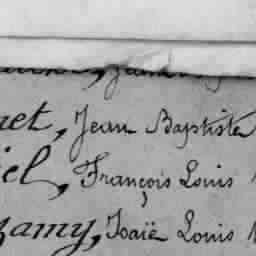 net, Jean Baptiste
iel, François Louis
zamy, Isaïe Louis